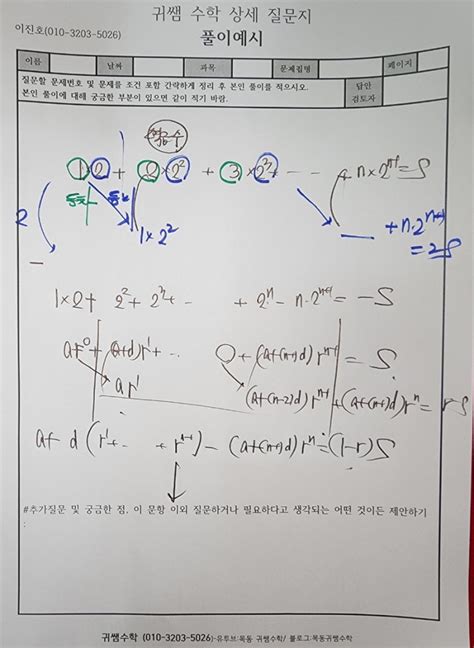 귀쌤 수학 상세 질문지
이진호(010-3203-5026)
풀이예시
이름 날짜 과목 문제집명 페이지
질문할 문제번호 및 문제를 조건 포함 간략하게 정리 후 본인 풀이를 적으시오.
본인 풀이에 대해 궁금한 부분이 있으면 같이 적기 바람.
답안
검토자
1×2 + 2×2² + 3×2³ + ---
2
1×2²
+ n·2ⁿ⁺¹
= 2S
1×2 + 2² + 2³ + ·· + 2ⁿ - n·2ⁿ⁺¹ = -S
ar⁰ + (a+d)r¹ + ··
= S
ar¹
#추가질문 및 궁금한 점, 이 문항 이외 질문하거나 필요하다고 생각되는 어떤 것이든 제안하기
:
귀쌤수학 (010-3203-5026)-유투브:목동 귀쌤수학/ 블로그:목동귀쌤수학